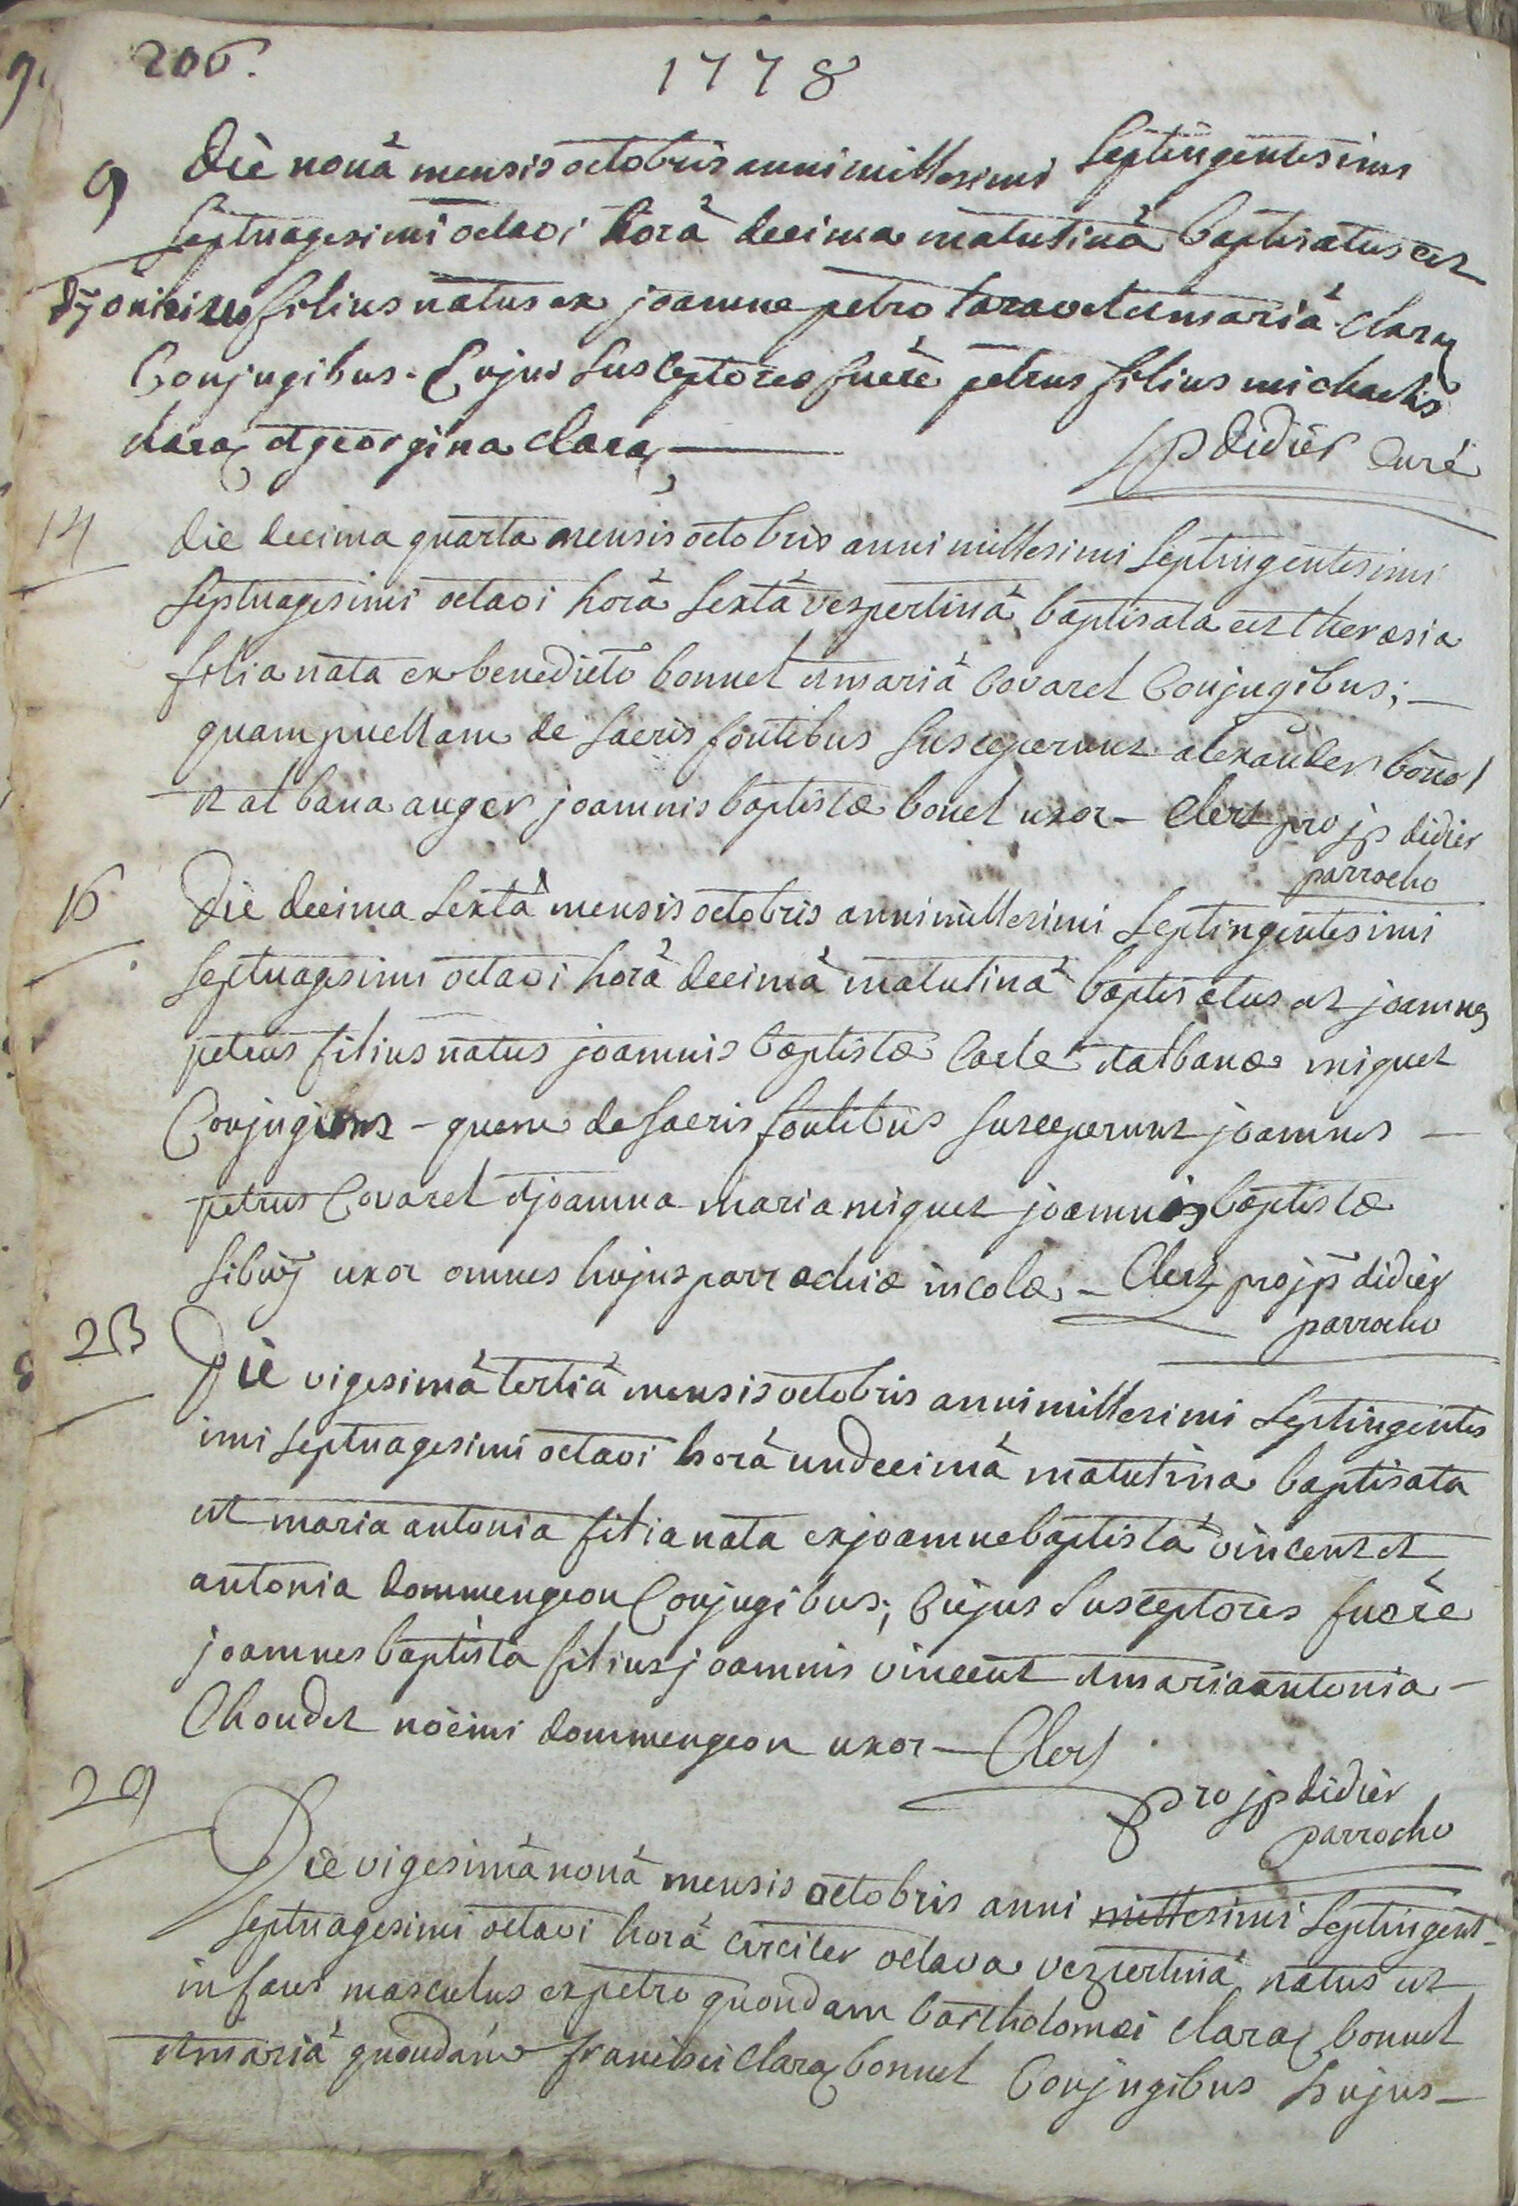 206.
1778
9 Die nonâ mensis octobris anni millesimi septingentesimi
septuagesimi octavi horâ decima matutinâ baptisatus est
dyonicius filius natus ex joanne petro taravel et mariâ claraz
Conjugibus. Cujus susceptores fuêre petrus filius michaelis
claraz et georgina claraz
jp didier Curé
14 die decima quarta mensis octobris anni millesimi septingentesimi
septuagesimi octavi horâ sextâ vespertinâ baptisata est theræsia
filia nata ex benedicto bonnel et mariâ Covarel Conjugibus;
quam puellam de sacris fontibus susceperunt alexander bonel
et albana auger joannis baptistæ bonel uxor - Clert pro jp didier
parrocho
16 Die decima sextâ mensis octobris anni millesimi septingentesimi
septuagesimi octavi horâ decimâ matutinâ baptisatus est joannes
petrus filius natus joannis baptistæ Carle et albanæ miguet
Conjugibus - quem de sacris fontibus susceperunt joannes
petrus Covarel et joanna maria miguet joannis baptistæ
uxor omnes hujus parrochiæ incolæ - Clert pro jp didier
parrocho
23 Die vigesimâ tertiâ mensis octobris anni millesimi septingentes
imi septuagesimi octavi horâ undecimâ matutina baptisata
est maria antonia filia nata ex joanne baptistâ vincent et
antonia dommengeon Conjugibus; Cujus susceptores fuêre
joannes baptista filius joannis vincent et maria antonia
Choudet noëmi dommengeon uxor - Clert
pro jp didier
parrocho
29
Die vigesimâ nonâ mensis octobris anni millesimi septingent-
septuagesimi octavi horâ circiter octava vespertinâ natus est
infans masculus ex petro quondam bartholomæi claraz bonnel
et mariâ quondam francisci claraz bonnel Conjugibus hujus-